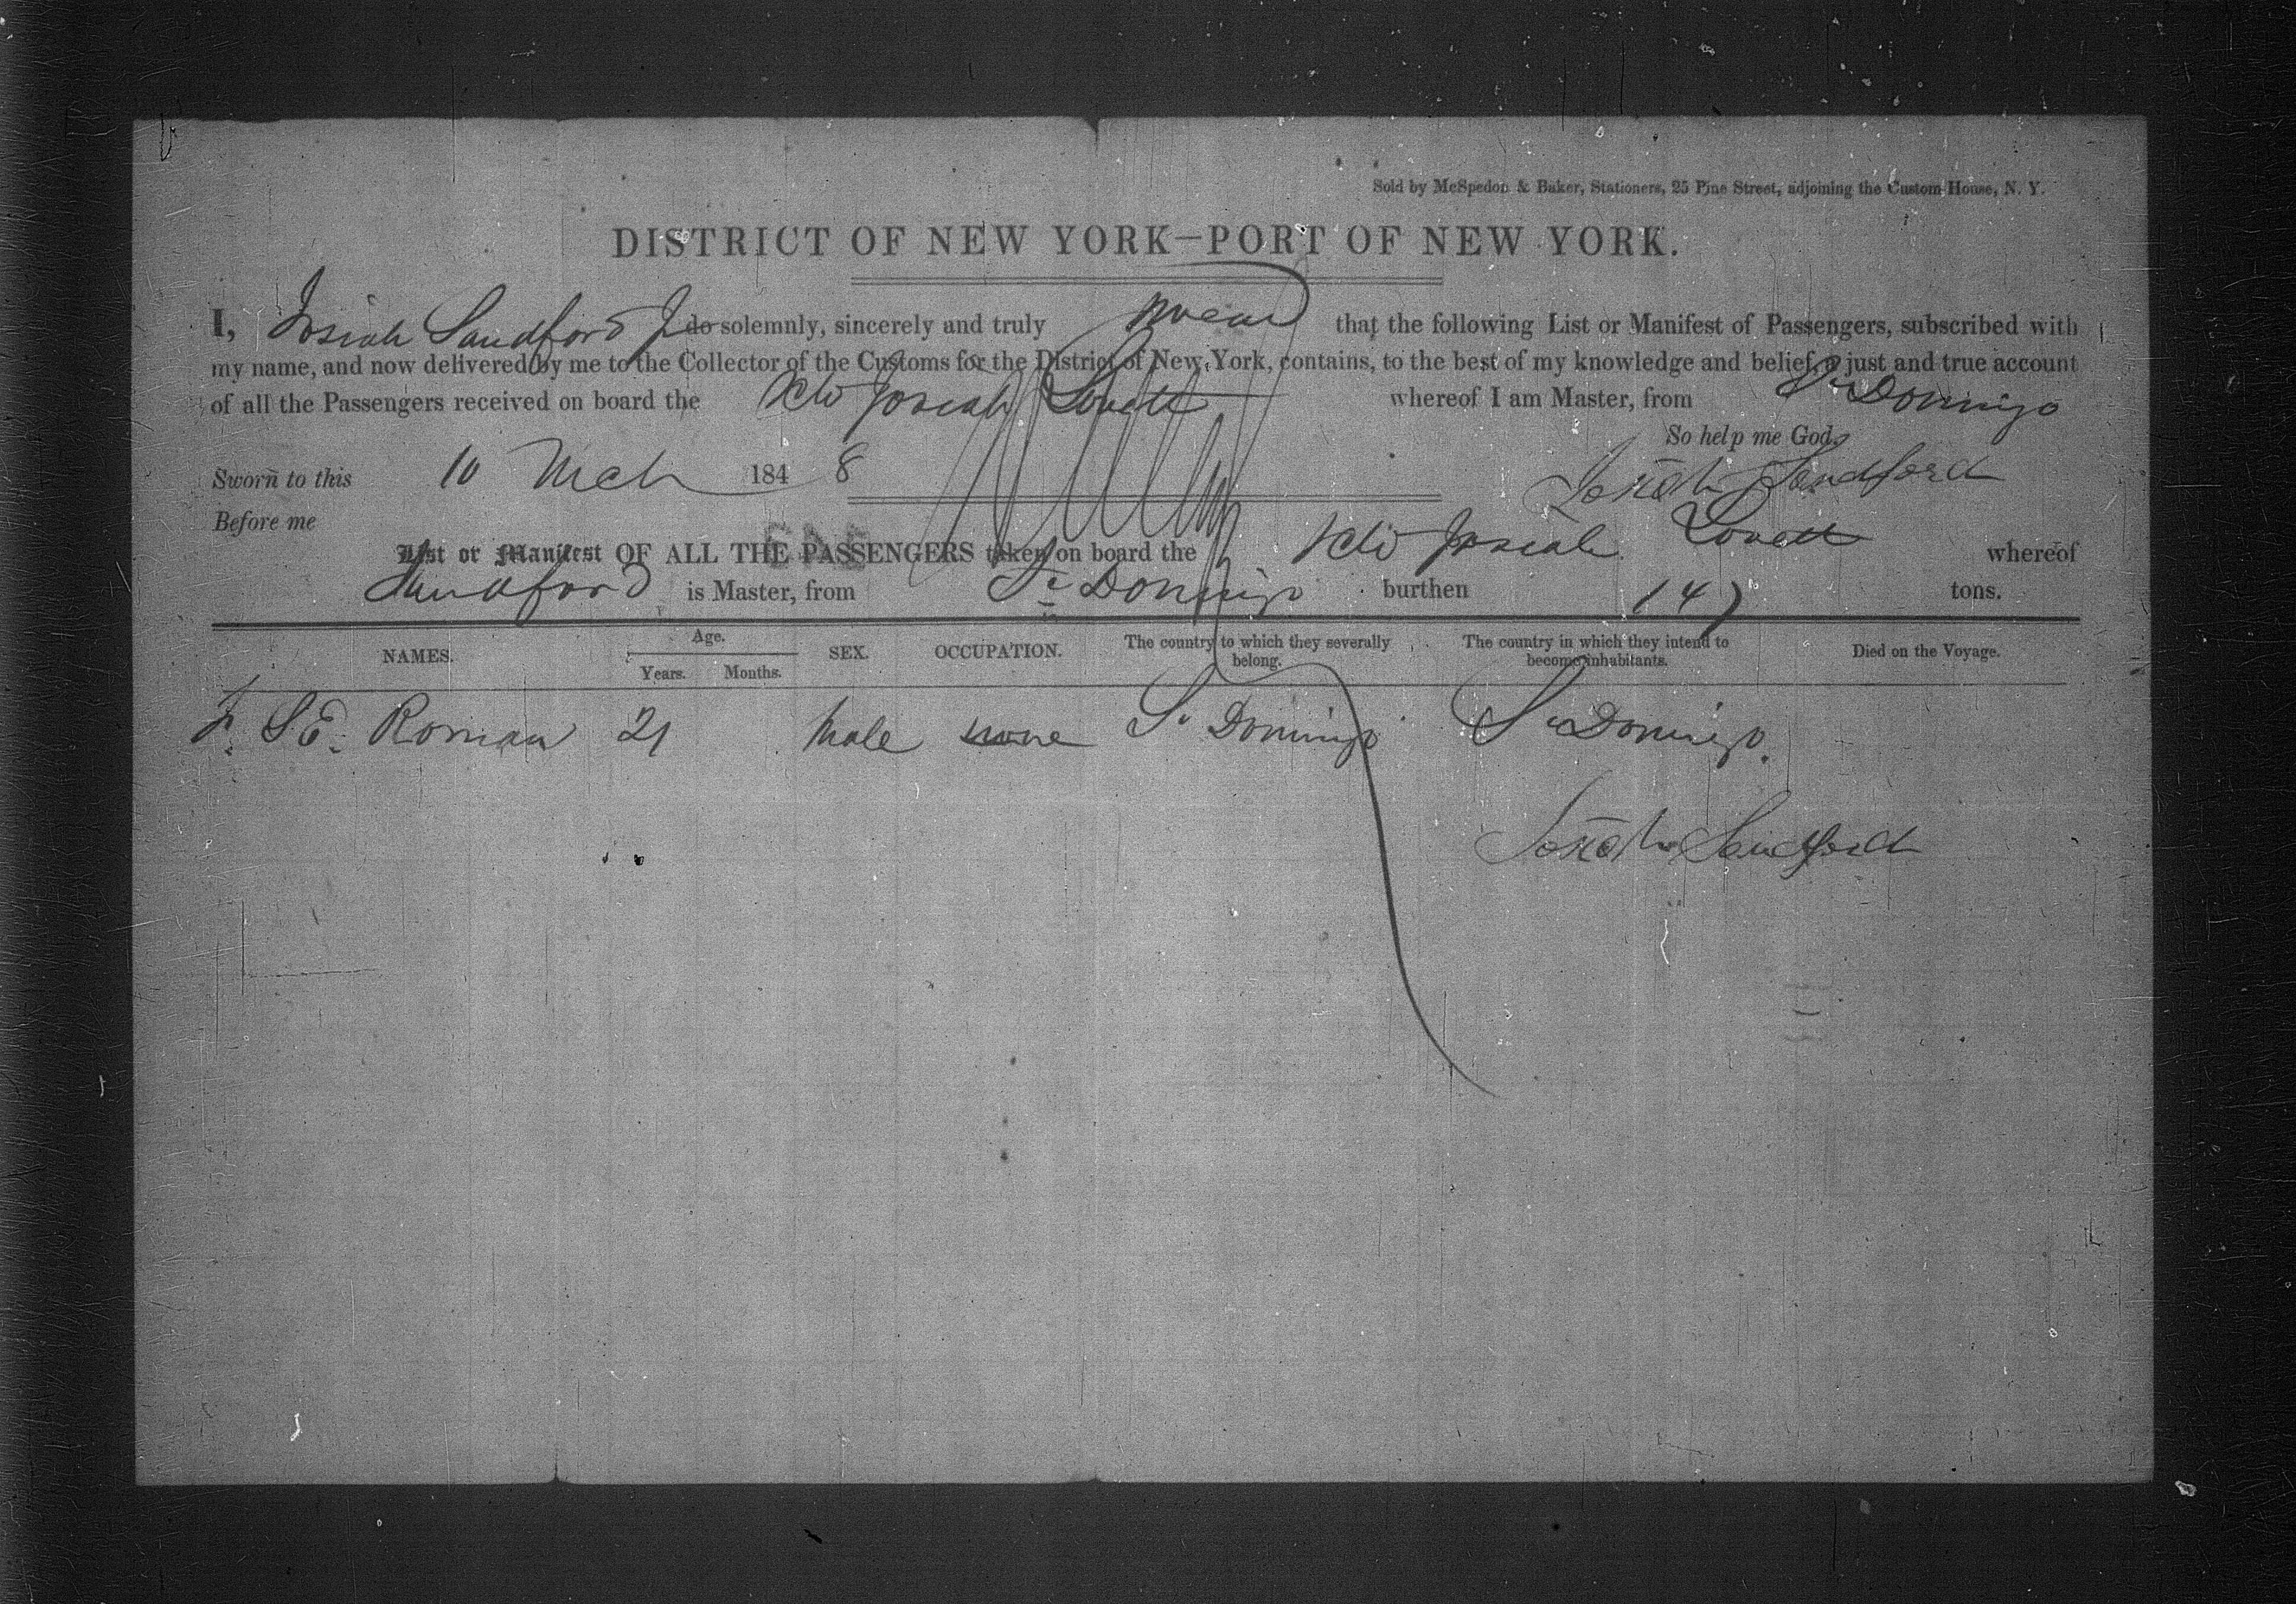 Sold by McSpedon & Baker, Stationers, 25 Pine Street, adjoining the Custom House, N. Y.
DISTRICT OF NEW YORK—PORT OF NEW YORK.
I, Josiah Sandford Jr do solemnly, sincerely and truly swear that the following List or Manifest of Passengers, subscribed with
my name, and now delivered by me to the Collector of the Customs for the District of New York, contains, to the best of my knowledge and belief, a just and true account
of all the Passengers received on board the Schr Josiah Lovett whereof I am Master, from St Domingo
So help me God.
Sworn to this 10 Mch 1848
Josiah Sandford
Before me
List or Manifest OF ALL THE PASSENGERS taken on board the Schr Josiah Lovett whereof
Sandford is Master, from St Domingo burthen 147 tons.
NAMES. Age. Years. Months. SEX. OCCUPATION. The country to which they severally belong. The country in which they intend to become inhabitants. Died on the Voyage.
S E. Roman 21 Male none St Domingo St Domingo.
Josiah Sandford